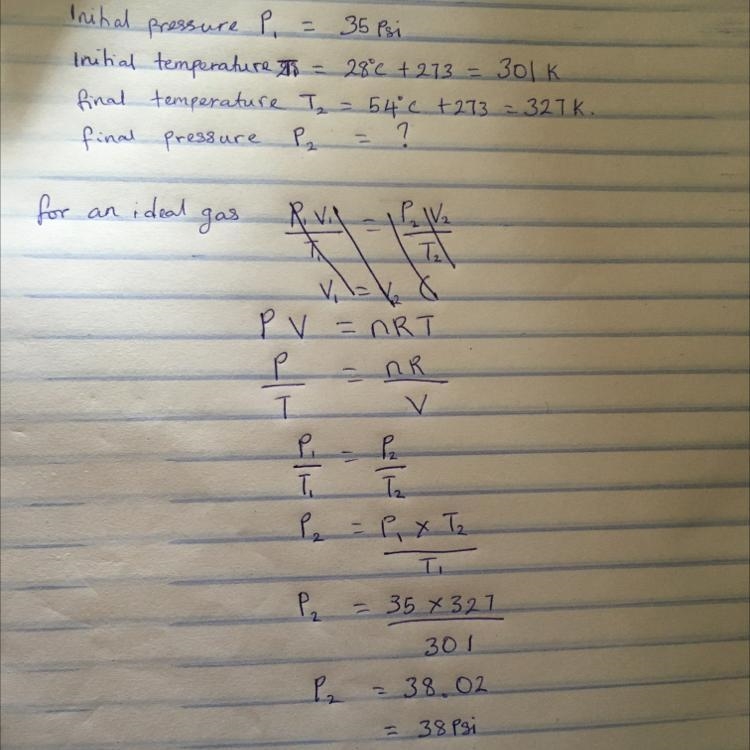 Initial pressure P₁ = 35 Psi
Initial temperature = 28°C + 273 = 301 K
final temperature T₂ = 54°C + 273 = 327 K.
final pressure P₂ = ?
for an ideal gas P₁ V₁ / T₁ = P₂ V₂ / T₂
V₁ = V₂
P V = nRT
P / T = nR / V
P₁ / T₁ = P₂ / T₂
P₂ = P₁ × T₂ / T₁
P₂ = 35 × 327 / 301
P₂ = 38.02
= 38 Psi